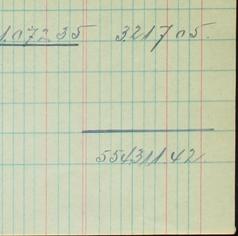 1.072 35 3217 05.
5543 11 42